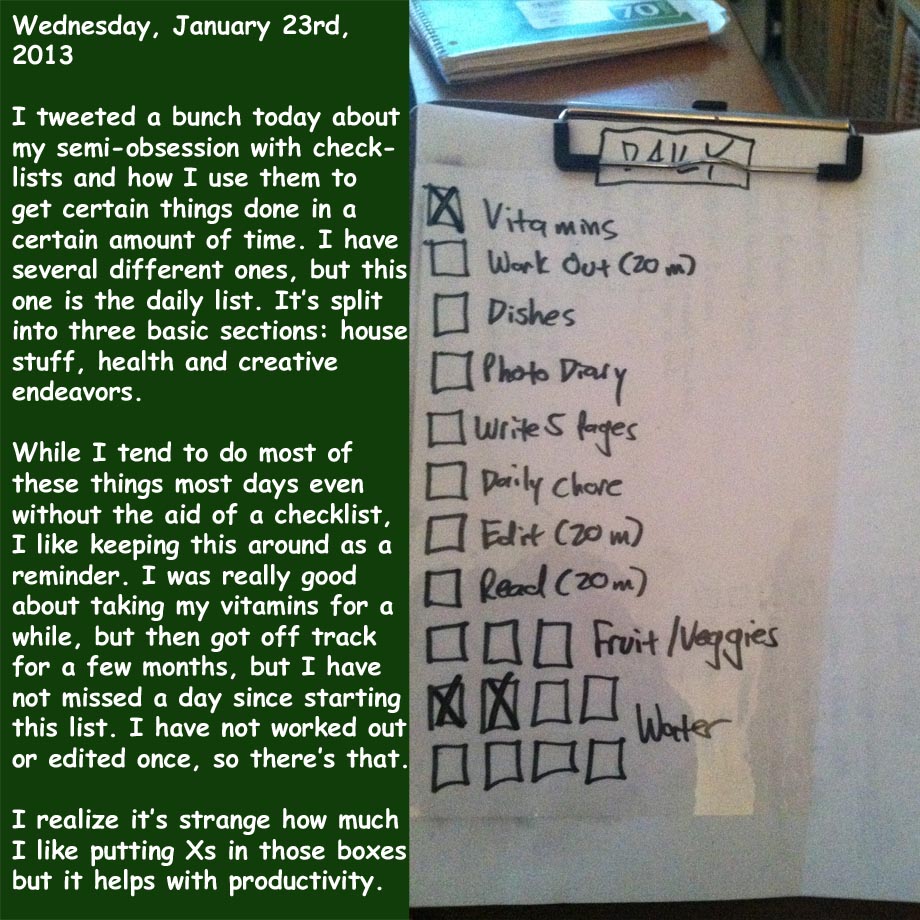 Wednesday, January 23rd,
2013
I tweeted a bunch today about
my semi-obsession with check-
lists and how I use them to
get certain things done in a
certain amount of time. I have
several different ones, but this
one is the daily list. It's split
into three basic sections: house
stuff, health and creative
endeavors.
While I tend to do most of
these things most days even
without the aid of a checklist,
I like keeping this around as a
reminder. I was really good
about taking my vitamins for a
while, but then got off track
for a few months, but I have
not missed a day since starting
this list. I have not worked out
or edited once, so there's that.
I realize it's strange how much
I like putting Xs in those boxes
but it helps with productivity.
70
DAILY
Vitamins
Work Out (20 m)
Dishes
Photo Diary
Write 5 Pages
Daily Chore
Edit (20 m)
Read (20 m)
Fruit/Veggies
Water